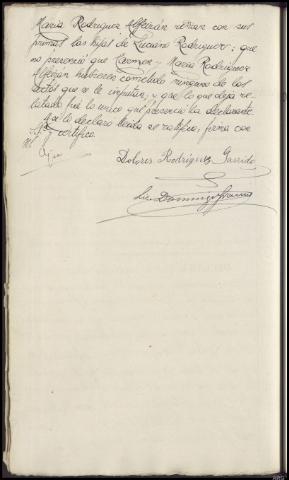 Maria Rodriguez Alfeirán reñian con sus
primas las hijas de Luciano Rodriguez; que
no presenció que Carmen y Maria Rodriguez
Alfeiran hubiesen cometido ninguno de los
actos que se le imputan, y que lo que deja re-
latado fué lo unico que presenció la declarante
Asi lo declaro leida se ratifica, firma con
S.Sª y certifico.
Dolores Rodriguez Garrido
Domingo